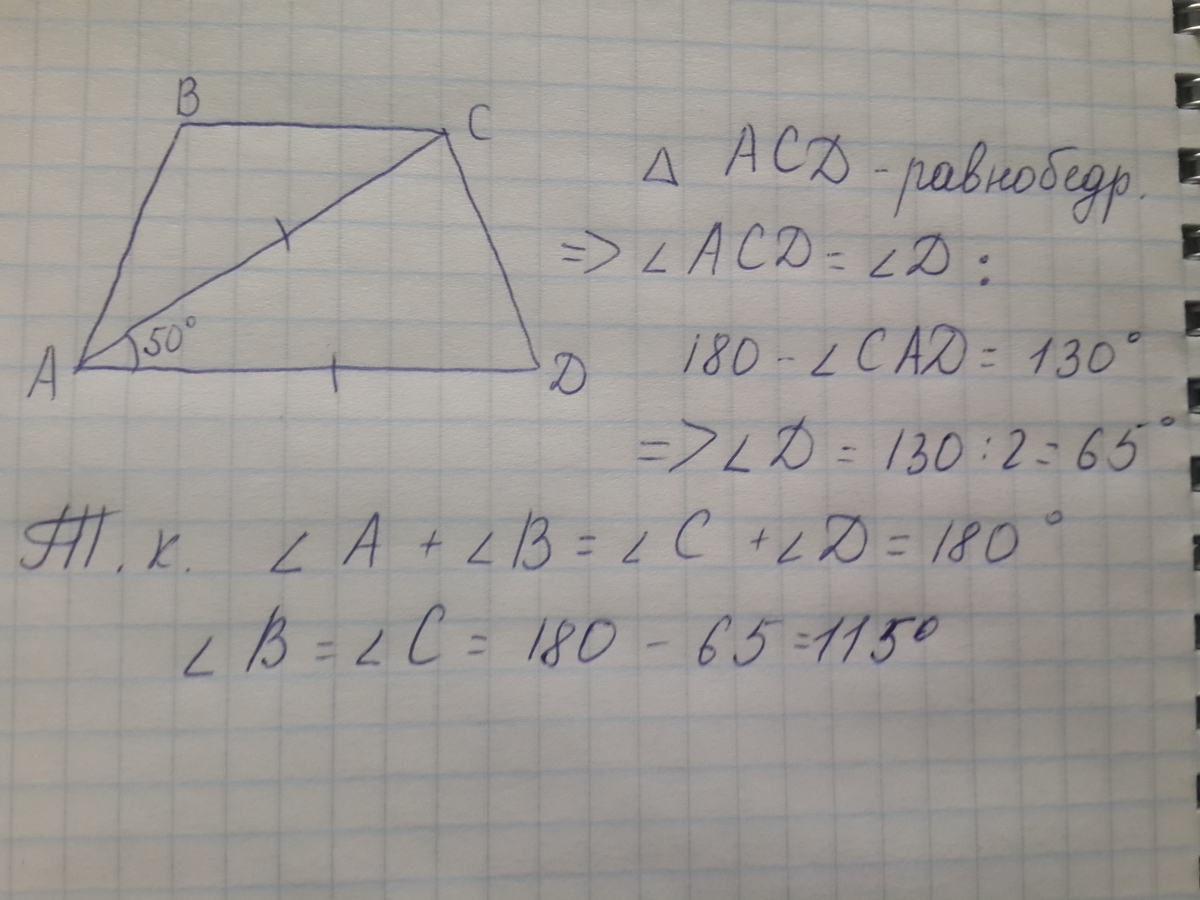 B
C
50°
A
D
Δ ACD - равнобедр.
=> ∠ACD = ∠D :
180 - ∠CAD = 130°
=> ∠D = 130 : 2 = 65°
Т. к. ∠A + ∠B = ∠C + ∠D = 180°
∠B = ∠C = 180 - 65 = 115°